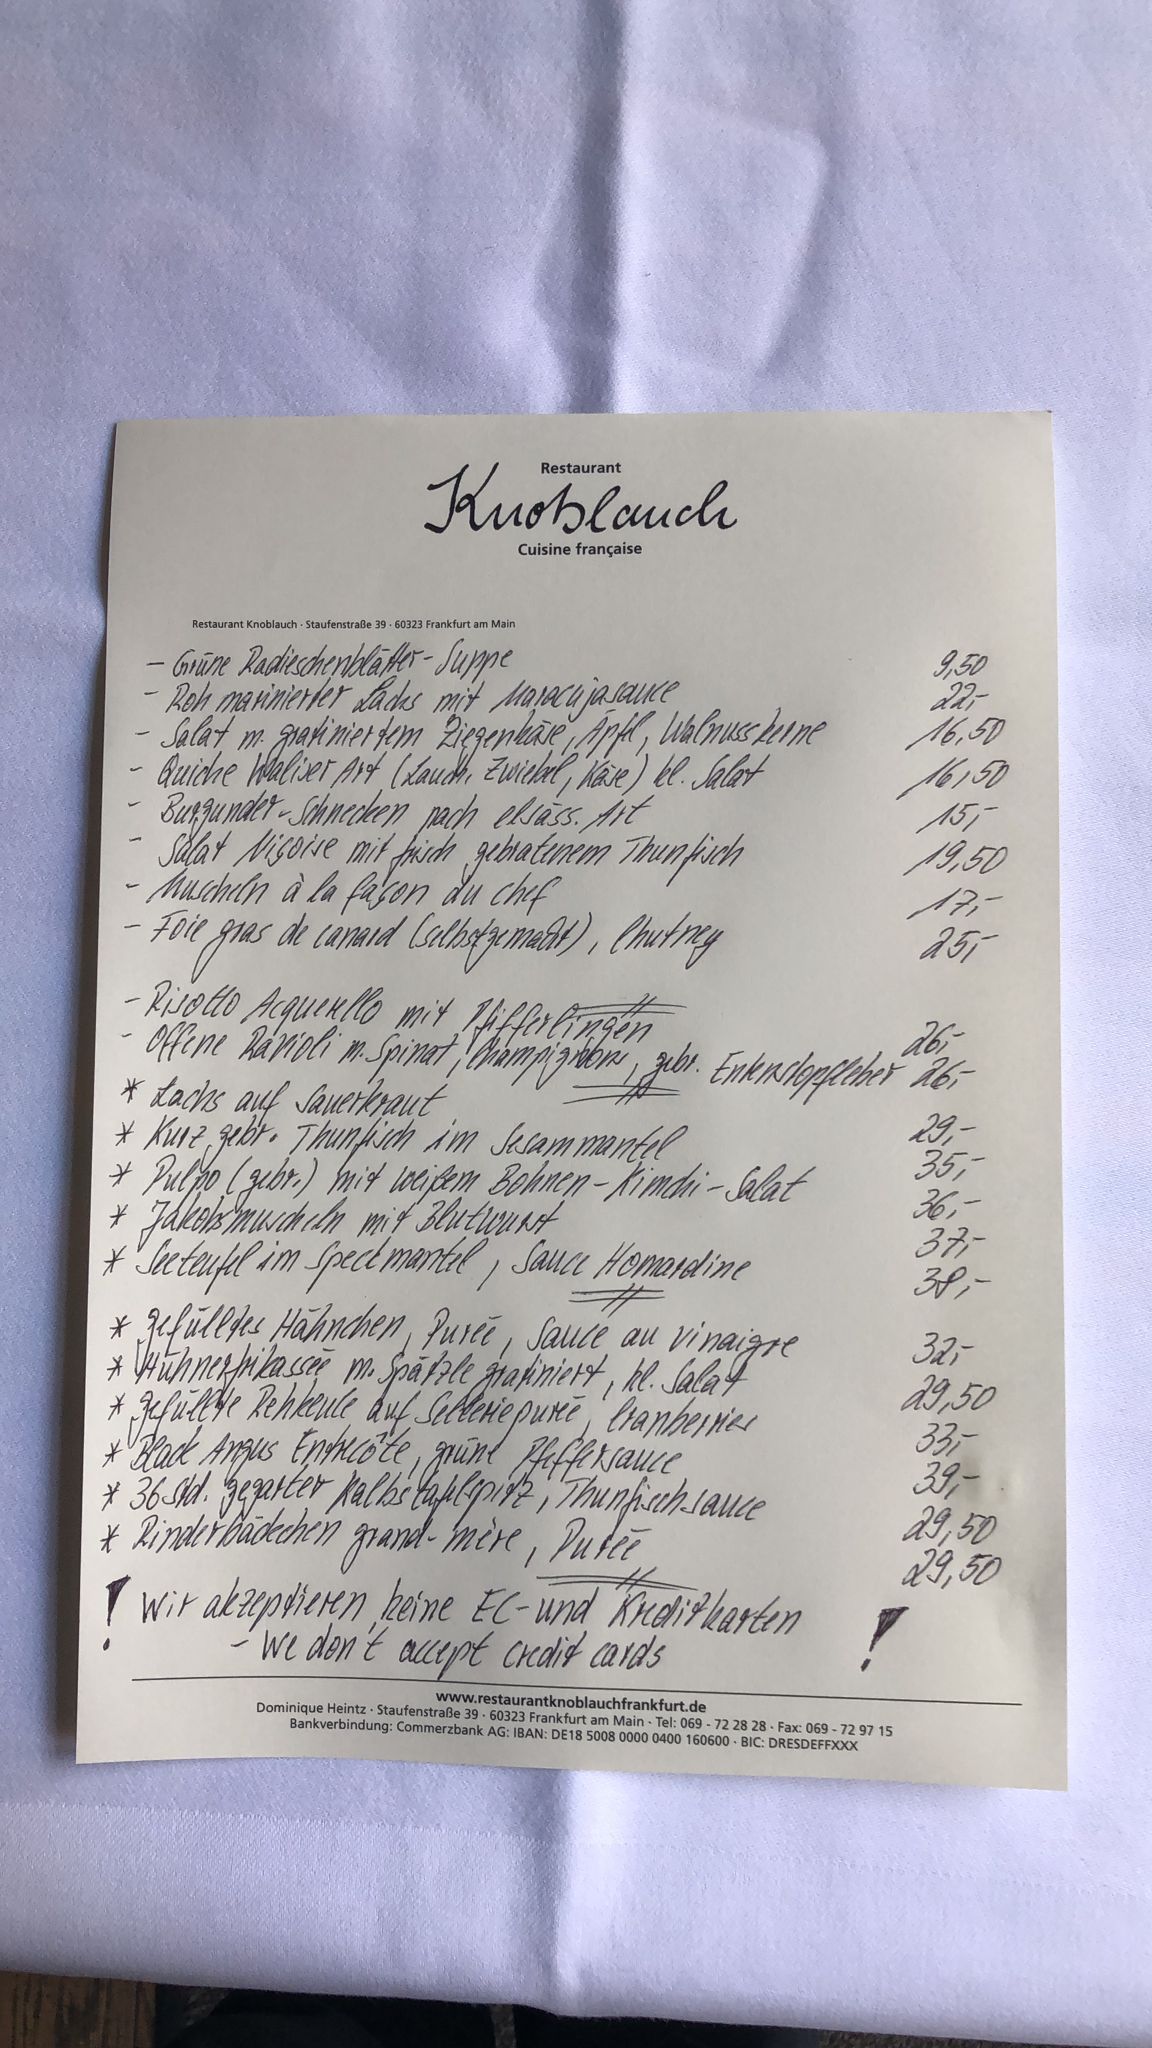 Restaurant
Knoblauch
Cuisine française
Restaurant Knoblauch · Staufenstraße 39 · 60323 Frankfurt am Main
- Grüne Radieschenblätter-Suppe 9,50
- Roh marinierter Lachs mit Maracujasauce 22,-
- Salat m. gratiniertem Ziegenkäse, Äpfl, Walnusskerne 16,50
- Quiche Waliser Art (Lauch, Zwiebel, Käse) kl. Salat 16,50
- Burgunder-Schnecken nach elsäss. Art 15,-
- Salat Niçoise mit frisch gebratenem Thunfisch 19,50
- Muscheln à la façon du chef 17,-
- Foie gras de canard (selbstgemacht), Chutney 25,-
- Risotto Acquerello mit Pfifferlingen 26,-
- Offene Ravioli m. Spinat, Champignons, gebr. Entenstopfleber 26,-
* Lachs auf Sauerkraut 29,-
* Kurz gebr. Thunfisch im Sesammantel 35,-
* Pulpo (gebr.) mit weißem Bohnen-Kimchi-Salat 36,-
* Jakobsmuscheln mit Blutwurst 37,-
* Seeteufel im Speckmantel, Sauce Homardine 38,-
* gefülltes Hähnchen, Purée, Sauce au vinaigre 32,-
* Hühnerfrikassée m. Spätzle gratiniert, kl. Salat 29,50
* gefüllte Rehkeule auf Selleriepurée, Cranberries 33,-
* Black Angus Entrecôte, grüne Pfeffersauce 39,-
* 36 Std. gegarter Kalbstafelspitz, Thunfischsauce 29,50
* Rinderbäckchen grand-mère, Purée 29,50
! Wir akzeptieren keine EC- und Kreditkarten !
- We don't accept credit cards
www.restaurantknoblauchfrankfurt.de
Dominique Heintz · Staufenstraße 39 · 60323 Frankfurt am Main · Tel: 069 - 72 28 28 · Fax: 069 - 72 97 15
Bankverbindung: Commerzbank AG: IBAN: DE18 5008 0000 0400 160600 · BIC: DRESDEFFXXX